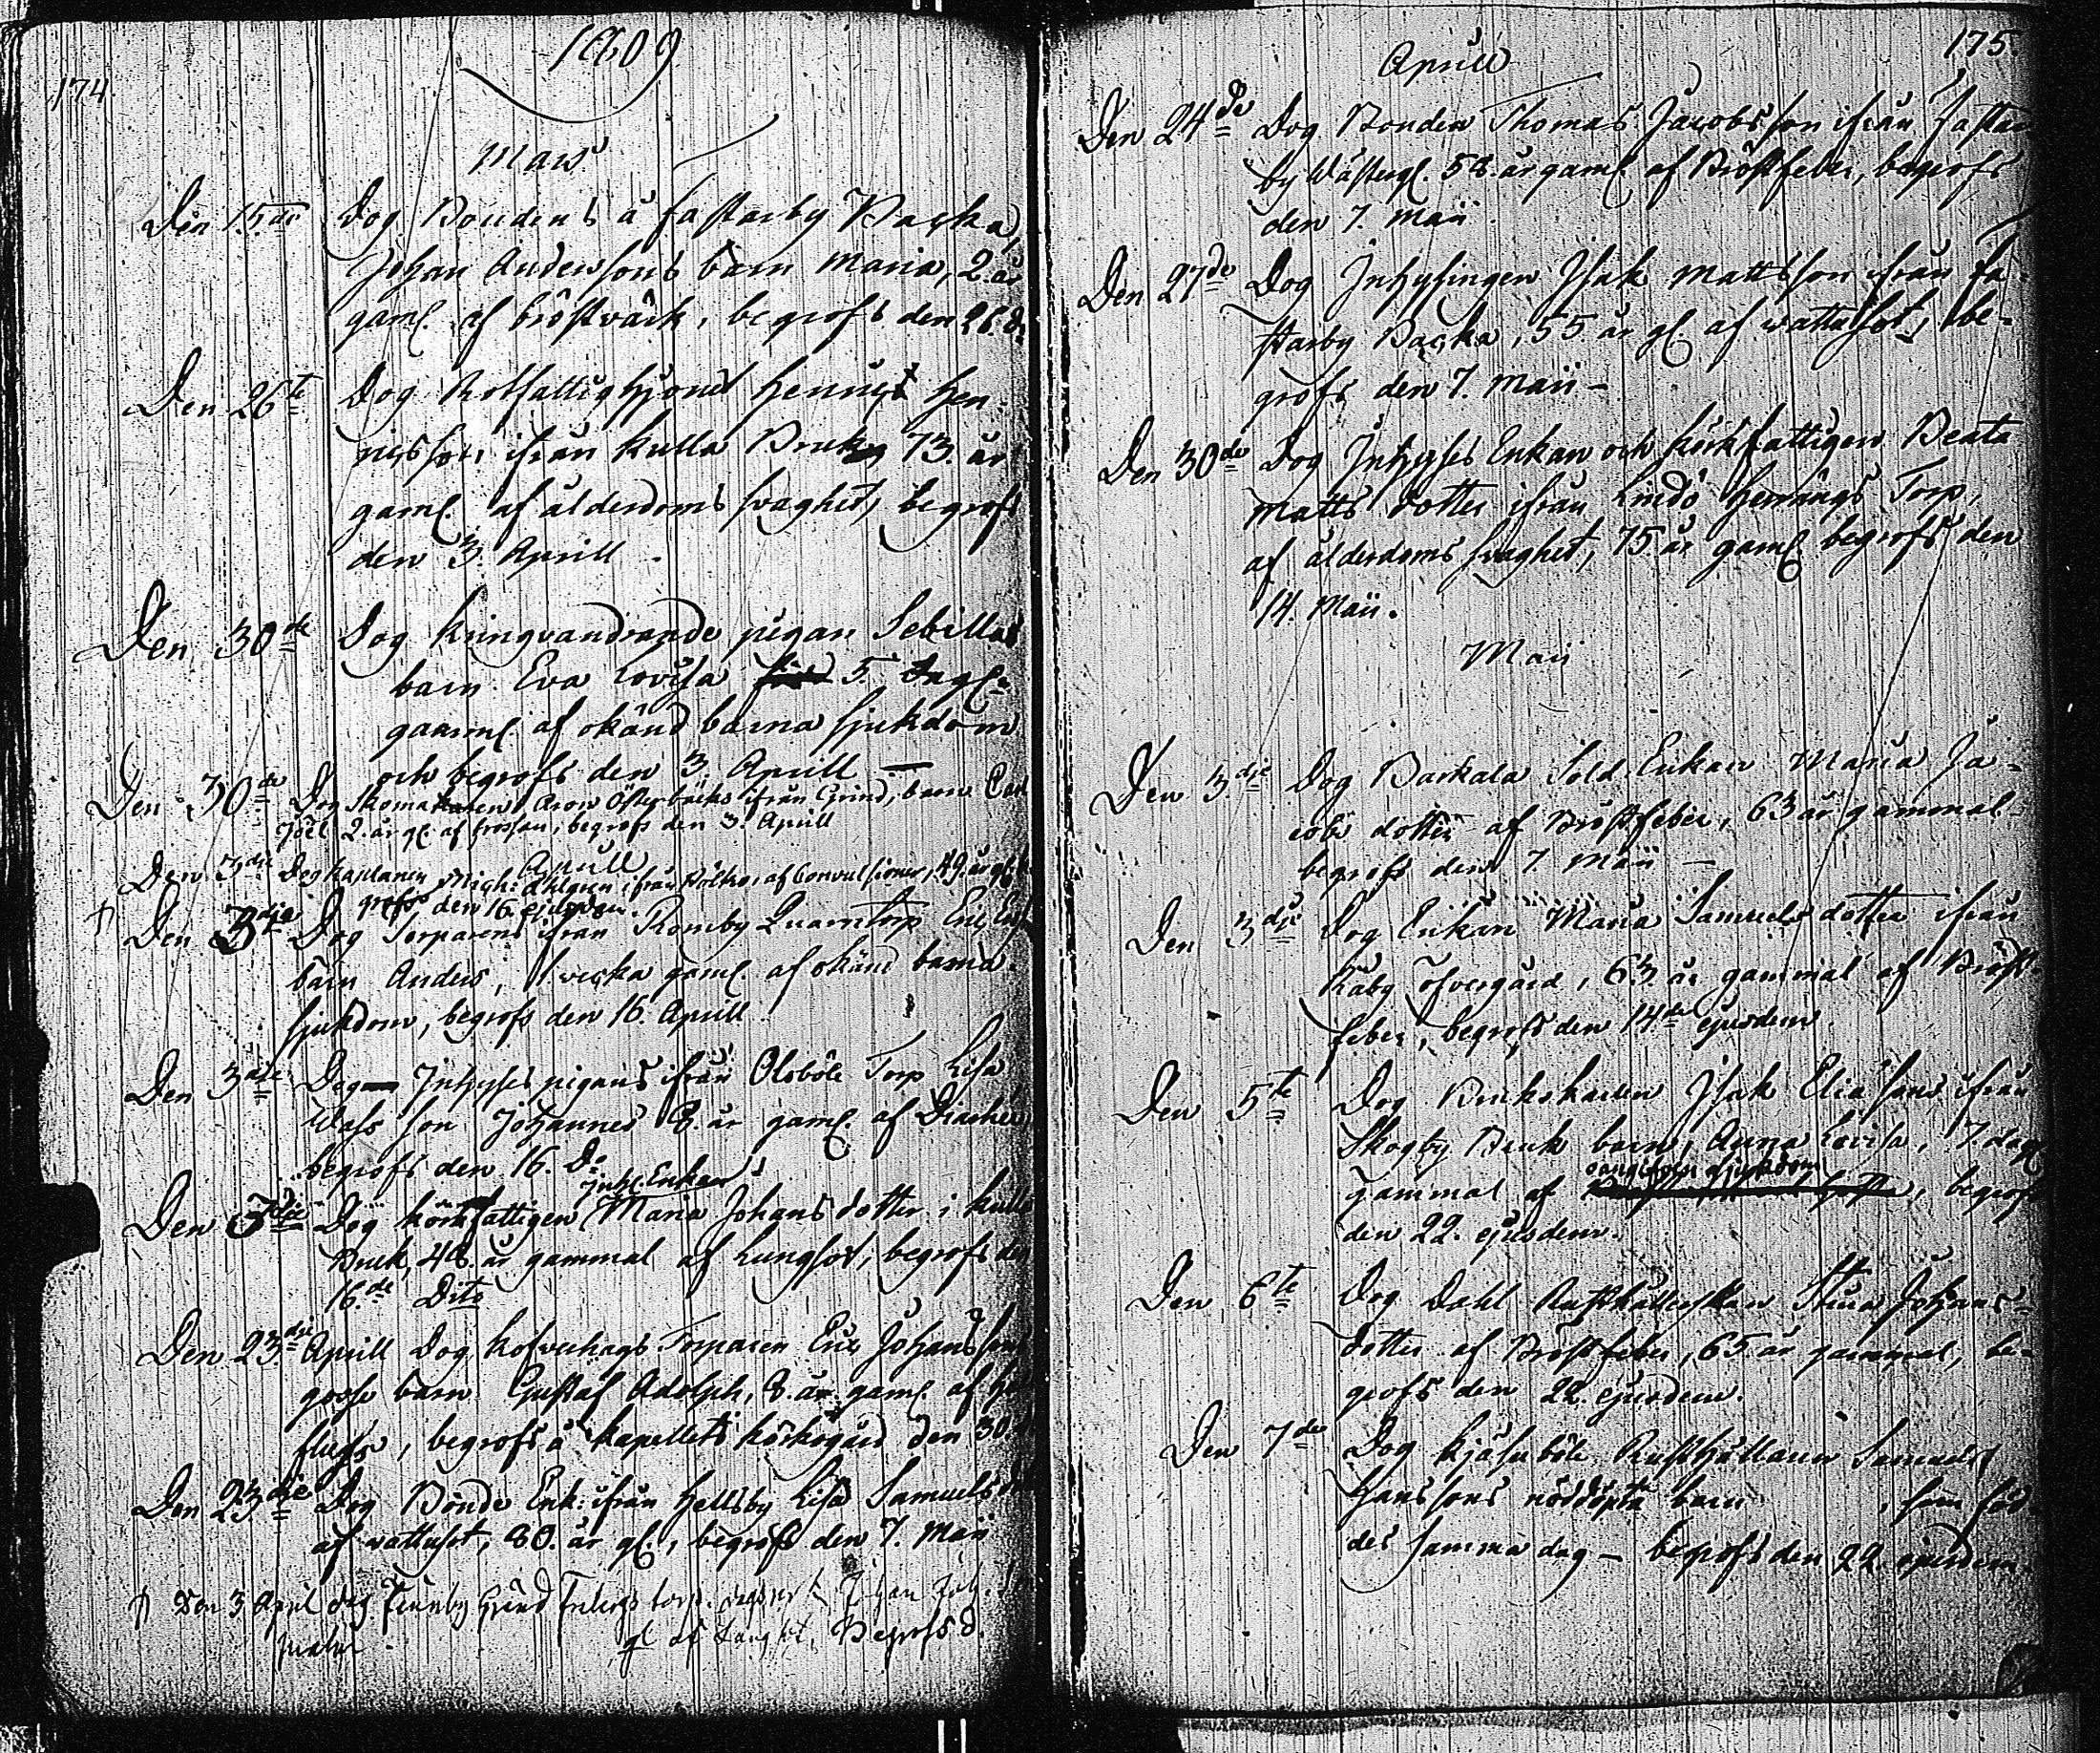 174
1809
Mars
Den 15de Dog Bondens å Fastarby Backa,
Johan Andersons barn Maria, 2. år
gaml. af bröstvärk, begrofs den 26. d:o
Den 26te Dog Rotfattighjonet Hen
ricsson, ifrån Kulla Bruk 73. år
gaml. af ålderdoms svaghet, begrofs
den 3. Aprill
Den 30de Dog kringvandrande pigan Sebillas
barn Eva Lovisa 5.
gamml. af okänd barna sjukdom
och begrofs den 3. Aprill
Den 30de Dog Skomakaren Aron Österbäcks ifrån Grind, barn Carl
Joël 2. år gl. af frossan, begrofs den 3. Aprill
Aprill
Den 3dje Dog kaplanen Mich: ifrån af Convulsioner, 49. år gl. be
grofs den 16. ejusdem.
Den 3dje Dog Torparens ifrån Romby Quarntorp Eric
barn Anders, 1 vecka gaml. af okänd barna
sjukdom, begrofs den 16. Aprill
Den 3dje Dog Inhyses pigans ifrån Olsböle Torp Lisa
son Johannes år gaml. af
begrofs den 16. D:o
Inhs. Enkan
Den 3dje Dog körkfattigen Maria Johans dotter i Kulla
Bruk, 48. år gammal af Lungsot, begrofs den
16.de Dito
Den 23.dje Aprill Dog Torparen Eric Johansson
gosse barn Gustaf Adolph, år gaml. af
, begrofs å Kapellets körkogård den 30.
Den 23dje Dog Bonde Enk: ifrån Hellsby Lisa Samuelsd
af vattusot, 80. år gl., begrofs den 7. Maii
Den 3 April dog Finnby Grind torp. Johan
gl af Begrofs d.
175
Aprill
Den 24de Dog Bonden Thomas Jacobsson ifrån Fastar
by Wästergl. 58. år gaml. af Bröstfeber, begrofs
den 7. Maii
Den 27de Dog Inhysingen Isak Mattsson ifrån Fa-
starby Backa, 55. år gl. af vattusot, be-
grofs den 7. Maii
Den 30de Dog Inhyses Enkan och körkfattigen Beata
Matts dotter ifrån Lindö Torp,
af ålderdoms svaghet, 75 år gaml. begrofs den
14. Maii.
Maii
Den 3dje Dog Barkala Sold. Enkan Maria Ja-
cobs dotter af Bröstfeber, 63 år gammal
begrofs den 7. Maii
Den 3dje Dog Enkan Maria Samuels dotter ifrån
Råby Öfvergård, 63. år gammal af Bröst
feber, begrofs den 14de ejusdem
Den 5te Dog Brukskarlen Isak Eliasons ifrån
Skogby Bruk barn, Anna Lovisa, 7. dag
oangifven sjukdom
gammal af , begrofs
den 22. ejusdem.
Den 6te Dog Dahl Rusthållerskan Stina Johans-
dotter af Bröstfeber, 65 år gammal, be-
grofs den 22. ejusdem.
Den 7de Dog böle Rusthållaren Samuel
Hanssons nöddöpta barn , som föd-
des samma dag – begrofs den 22. ejusdem.